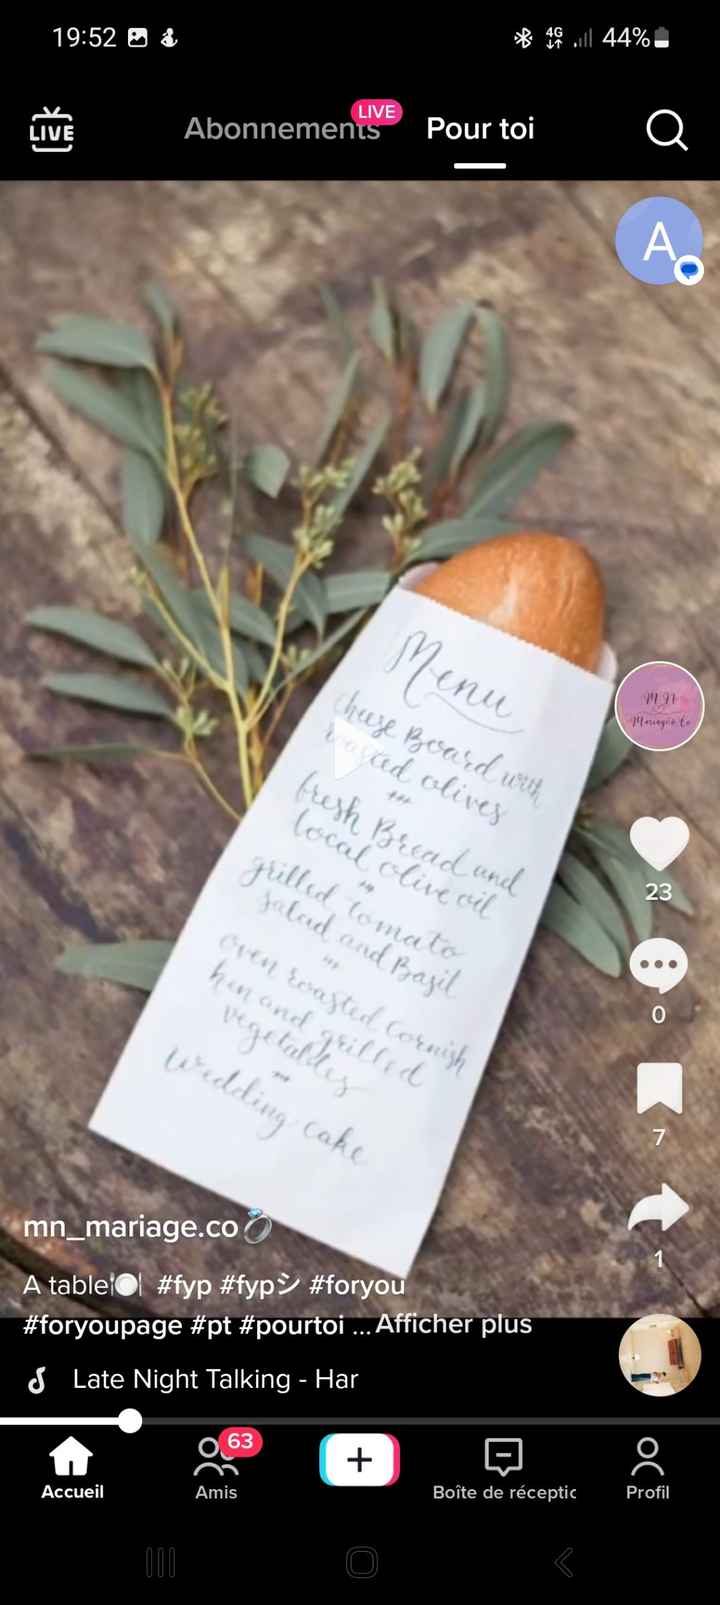 19:52
4G
44%
LIVE
Abonnements
LIVE
Pour toi
A
Menu
Cheese Board with
roasted olives
fresh Bread and
local olive oil
grilled tomato
salad and Basil
oven roasted Cornish
hen and grilled
vegetables
Wedding cake
M.N
Mariage.Co
23
0
7
1
mn_mariage.co
A table #fyp #fypシ #foryou
#foryoupage #pt #pourtoi ... Afficher plus
Late Night Talking - Har
63
Accueil
Amis
Boîte de réceptic
Profil